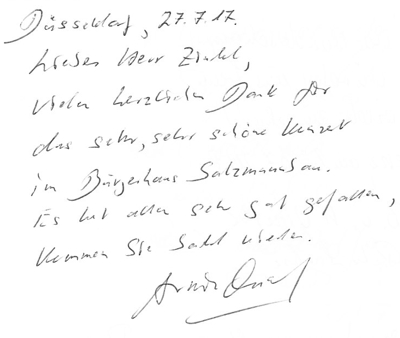 Düsseldorf, 27.7.17.
Lieber Herr
vielen herzlichen Dank für
das sehr, sehr schöne Konzert
im Bürgerhaus Salzmannbau.
Es hat allen sehr gut gefallen,
kommen Sie bald wieder.